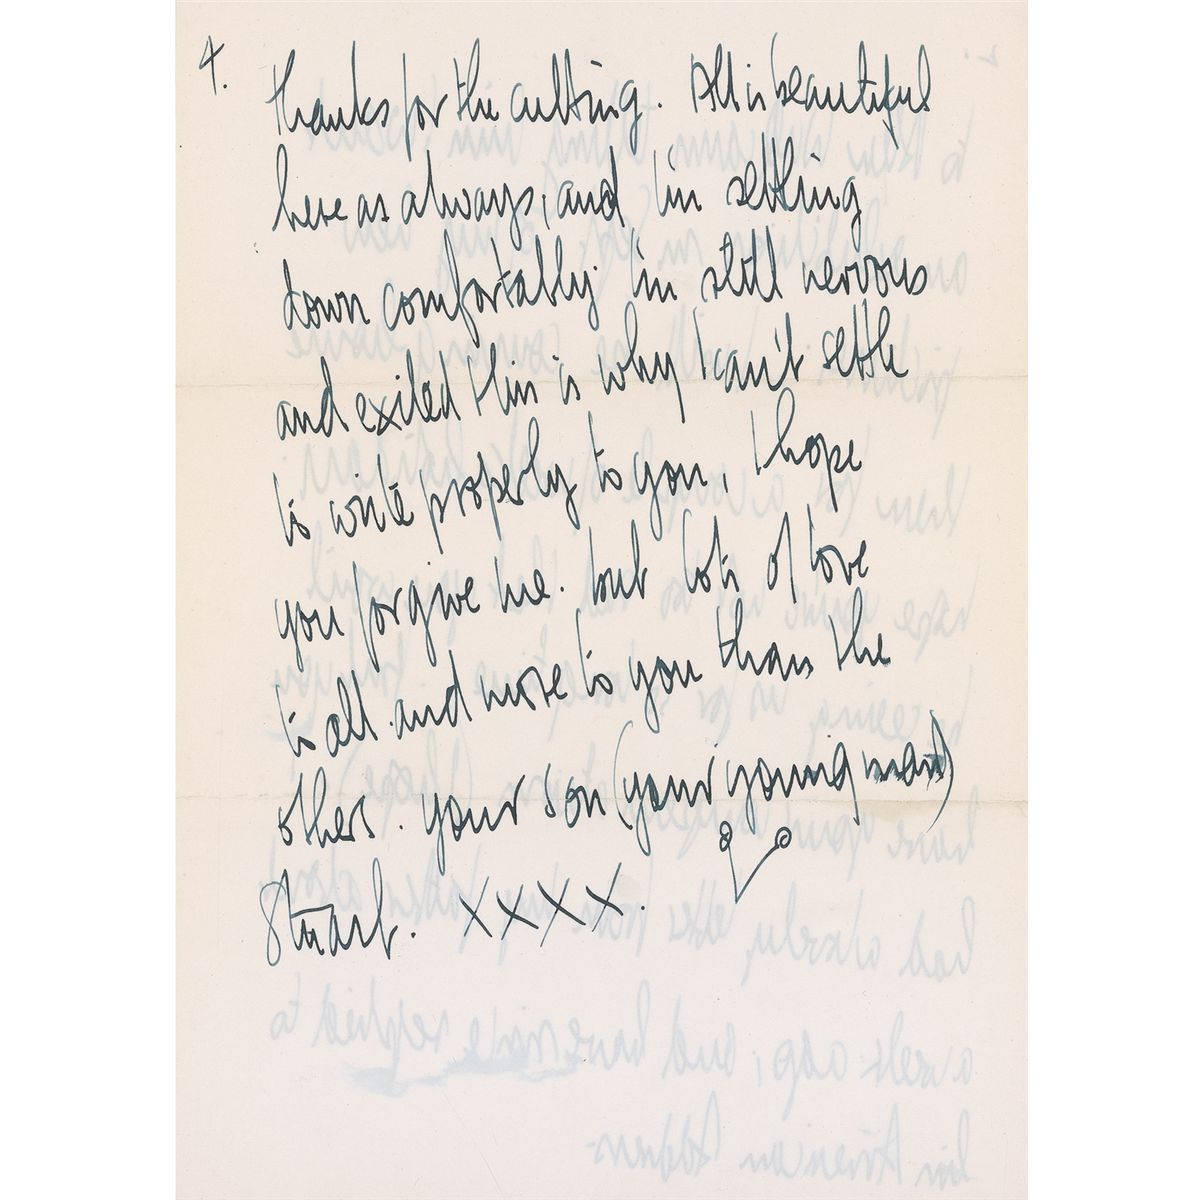 4.
thanks for the cutting. All is beautiful
here as always, and I'm settling
down comfortably I'm still nervous
and exited this is why I can't settle
to write properly to you, I hope
you forgive me. but lots of love
to all and more to you than the
others. your son (your young man)
Stuart. XXXX.